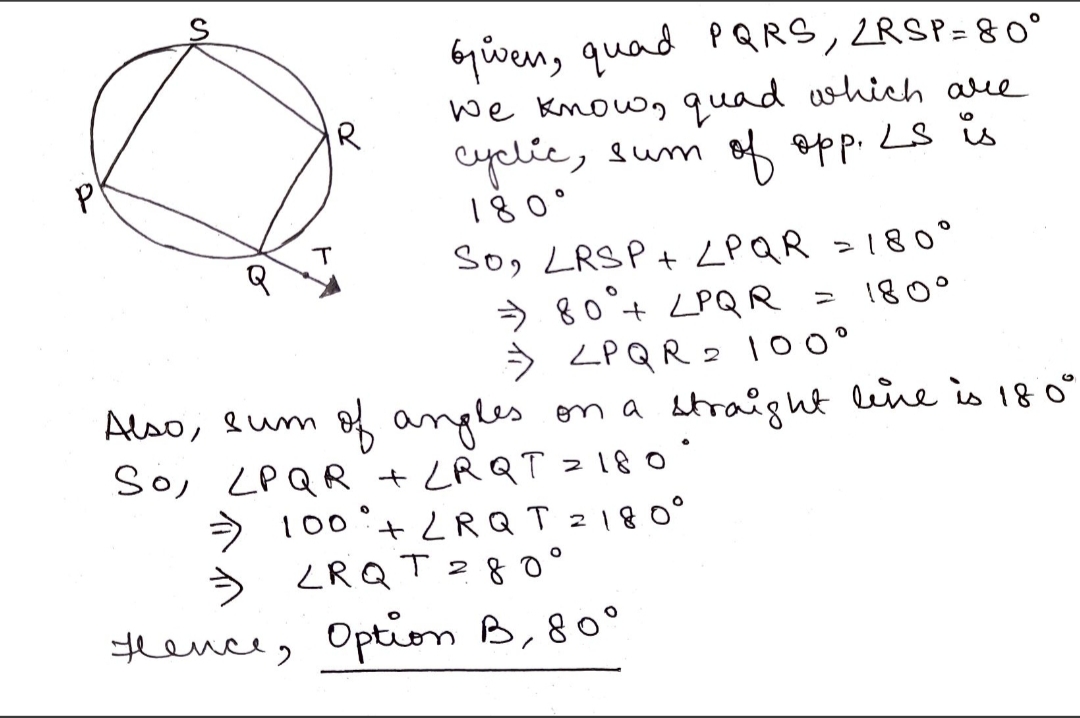 S
R
P
Q
T
Given, quad PQRS, ∠RSP=80°
We know, quad which are
cyclic, sum of opp. ∠S is
180°
So, ∠RSP + ∠PQR = 180°
⇒ 80° + ∠PQR = 180°
⇒ ∠PQR = 100°
Also, sum of angles on a straight line is 180°
So, ∠PQR + ∠RQT = 180°
⇒ 100° + ∠RQT = 180°
⇒ ∠RQT = 80°
Hence, Option B, 80°